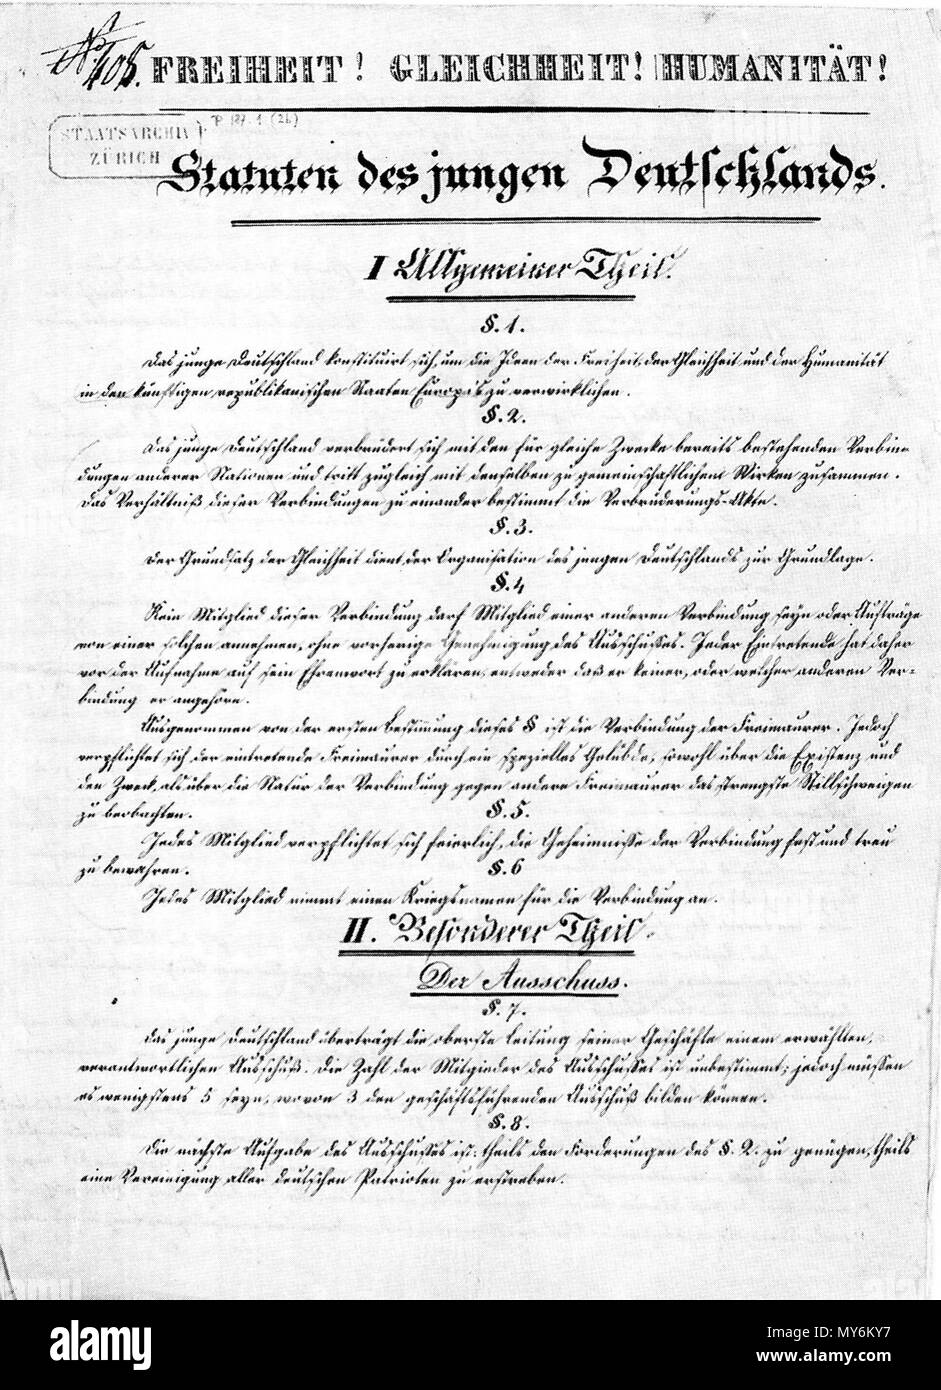 No 408.
FREIHEIT! GLEICHHEIT! HUMANITÄT!
STAATSARCHIV
ZÜRICH
P 187.1 (2b)
Statuten des jungen Deutschlands.
I Allgemeiner Theil.
§. 1.
Das junge Deutschland konstituirt sich, um die Ideen der Freiheit, der Gleichheit und der Humanität
in den künftigen republikanischen Staaten Europas zu verwirklichen.
§. 2.
Das junge Deutschland verbrüdert sich mit den für gleiche Zwecke bereits bestehenden Verbin-
dungen anderer Nationen und tritt zugleich mit denselben zu gemeinschaftlichem Wirken zusammen.
Das Verhältniß dieser Verbindungen zu einander bestimmt die Verbrüderungs-Akte.
§. 3.
Der Grundsatz der Gleichheit dient der Organisation des jungen Deutschlands zur Grundlage.
§. 4
Kein Mitglied dieser Verbindung darf Mitglied einer anderen Verbindung seyn oder Aufträge
von einer solchen annehmen, ohne vorherige Genehmigung des Ausschußes. Jeder Eintretende hat daher
vor der Aufnahme auf sein Ehrenwort zu erklären, entweder daß er keiner, oder welcher anderen Ver-
bindung er angehöre.
Ausgenommen von der ersten Bestimmung dieses § ist die Verbindung der Freimaurer. Jedoch
verpflichtet sich der eintretende Freimaurer durch ein spezielles Gelübde, sowohl über die Existenz und
den Zweck, als über die Natur der Verbindung gegen andere Freimaurer das strengste Stillschweigen
zu beobachten.
§. 5.
Jedes Mitglied verpflichtet sich feierlich, die Geheimnisse der Verbindung fest und treu
zu bewahren.
§. 6
Jedes Mitglied nimmt einen Kriegsnamen für die Verbindung an.
II. Besonderer Theil.
Der Ausschuss.
§. 7.
Das junge Deutschland überträgt die oberste Leitung seiner Geschäfte einem erwählten,
verantwortlichen Ausschuß. Die Zahl der Mitglieder des Ausschußes ist unbestimmt; jedoch müssen
es wenigstens 5 seyn, wovon 3 den geschäftsführenden Ausschuß bilden können.
§. 8.
Die nächste Aufgabe des Ausschußes ist: theils den Forderungen des §. 2. zu genügen, theils
eine Vereinigung aller deutschen Patrioten zu erstreben.
alamy
a
alamy
Image ID: MY6KY7
www.alamy.com